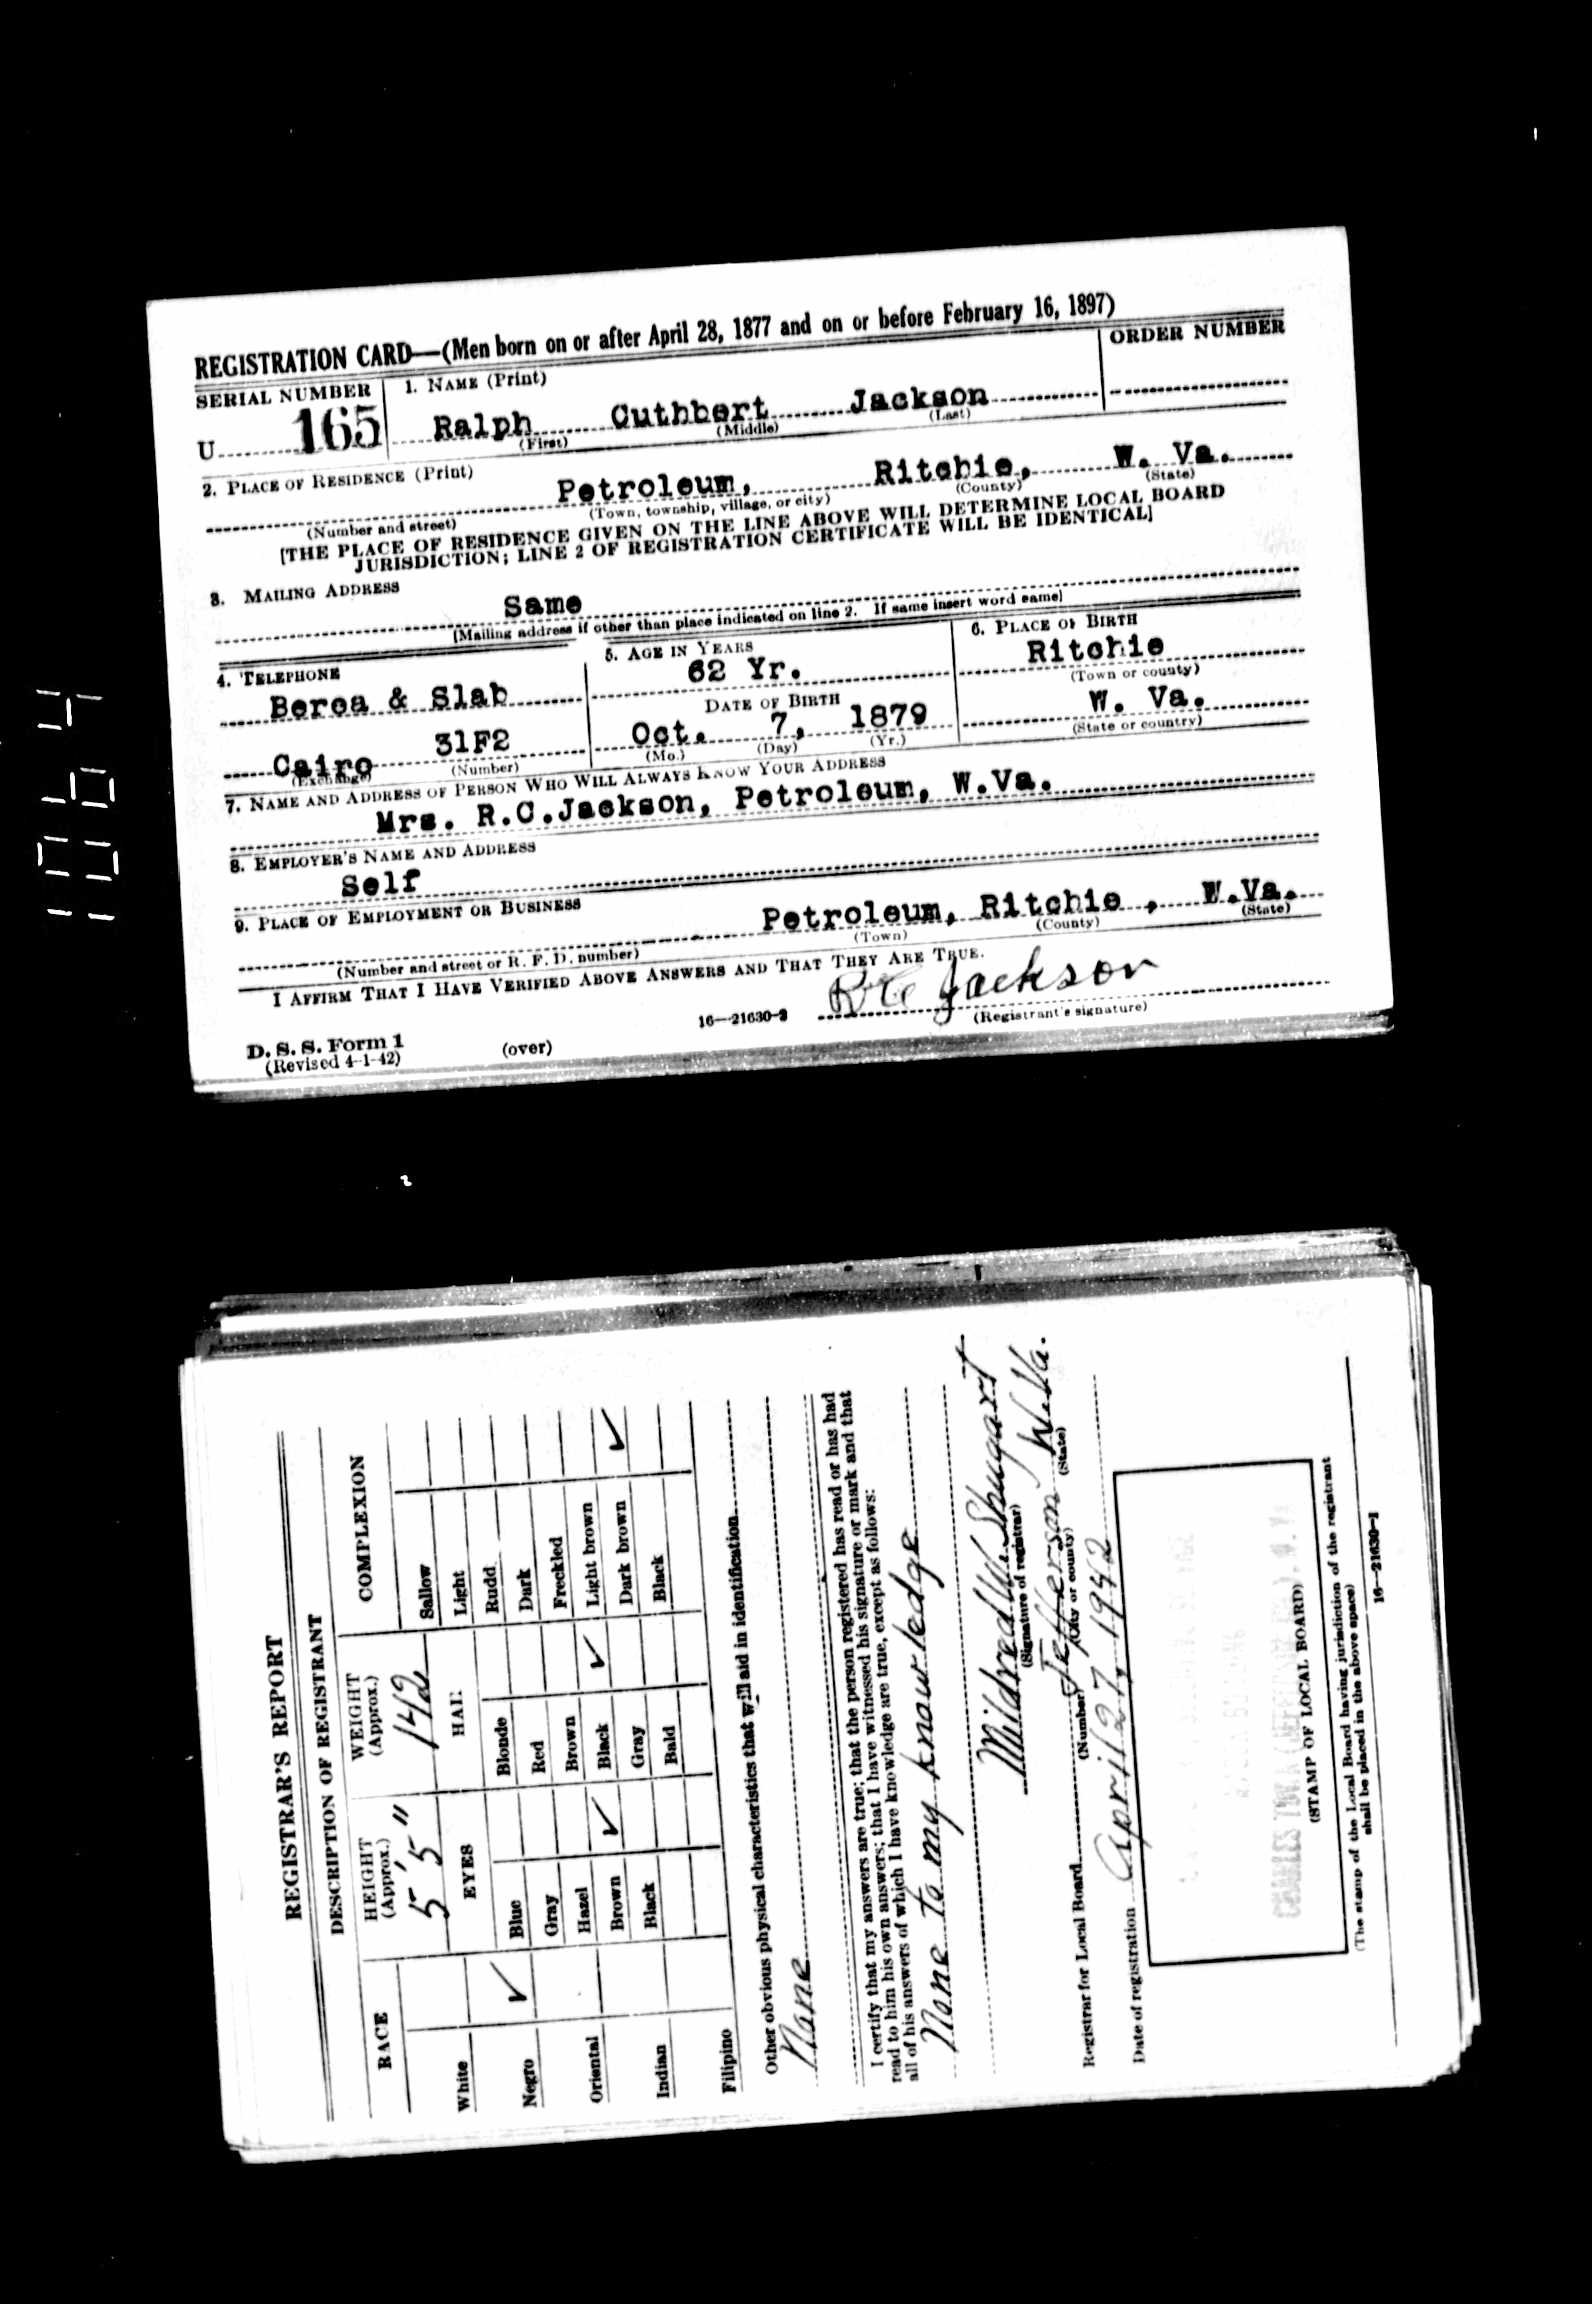 1064
REGISTRATION CARD—(Men born on or after April 28, 1877 and on or before February 16, 1897)
SERIAL NUMBER
1. NAME (Print)
ORDER NUMBER
U 165
Ralph Cuthbert Jackson
(First) (Middle) (Last)
2. PLACE OF RESIDENCE (Print)
Petroleum, Ritchie, W. Va.
(Number and street) (Town, township, village, or city) (County) (State)
[THE PLACE OF RESIDENCE GIVEN ON THE LINE ABOVE WILL DETERMINE LOCAL BOARD
JURISDICTION; LINE 2 OF REGISTRATION CERTIFICATE WILL BE IDENTICAL]
3. MAILING ADDRESS
Same
[Mailing address if other than place indicated on line 2. If same insert word same]
4. TELEPHONE
Berea & Slab
Cairo 31F2
(Exchange) (Number)
5. AGE IN YEARS
62 Yr.
DATE OF BIRTH
Oct. 7, 1879
(Mo.) (Day) (Yr.)
6. PLACE OF BIRTH
Ritchie
(Town or county)
W. Va.
(State or country)
7. NAME AND ADDRESS OF PERSON WHO WILL ALWAYS KNOW YOUR ADDRESS
Mrs. R.C.Jackson, Petroleum, W.Va.
8. EMPLOYER'S NAME AND ADDRESS
Self
9. PLACE OF EMPLOYMENT OR BUSINESS
Petroleum, Ritchie , W.Va.
(Number and street or R. F. D. number) (Town) (County) (State)
I AFFIRM THAT I HAVE VERIFIED ABOVE ANSWERS AND THAT THEY ARE TRUE.
R C Jackson
D. S. S. Form 1
(Revised 4-1-42)
(over)
16—21630-2
(Registrant's signature)
REGISTRAR'S REPORT
DESCRIPTION OF REGISTRANT
RACE
White
Negro ✓
Oriental
Indian
Filipino
HEIGHT
(Approx.)
5' 5"
WEIGHT
(Approx.)
142
COMPLEXION
EYES
Blue
Gray
Hazel
Brown ✓
Black
HAIR
Blonde
Red
Brown
Black ✓
Gray
Bald
Sallow
Light
Rudd
Dark
Freckled
Light brown
Dark brown ✓
Black
Other obvious physical characteristics that will aid in identification
None
I certify that my answers are true; that the person registered has read or has had
read to him his own answers; that I have witnessed his signature or mark and that
all of his answers of which I have knowledge are true, except as follows:
None to my knowledge
Mildred W. Shugart
(Signature of registrar)
Registrar for Local Board Jefferson W.Va.
(Number) (City or county) (State)
Date of registration April 27, 1942
(STAMP OF LOCAL BOARD)
(The stamp of the Local Board having jurisdiction of the registrant
shall be placed in the above space)
16—21630-1